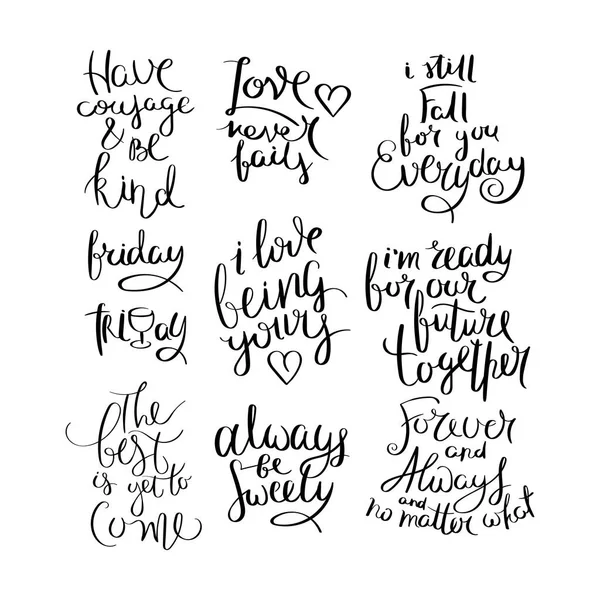 Have
courage
& Be
kind
Love
never
fails
i still
Fall
for you
Everyday
friday
friday
i love
being
yours
i'm ready
for our
future
together
The
best
is yet to
Come
always
be
Sweety
Forever
and
Always
and
no matter what